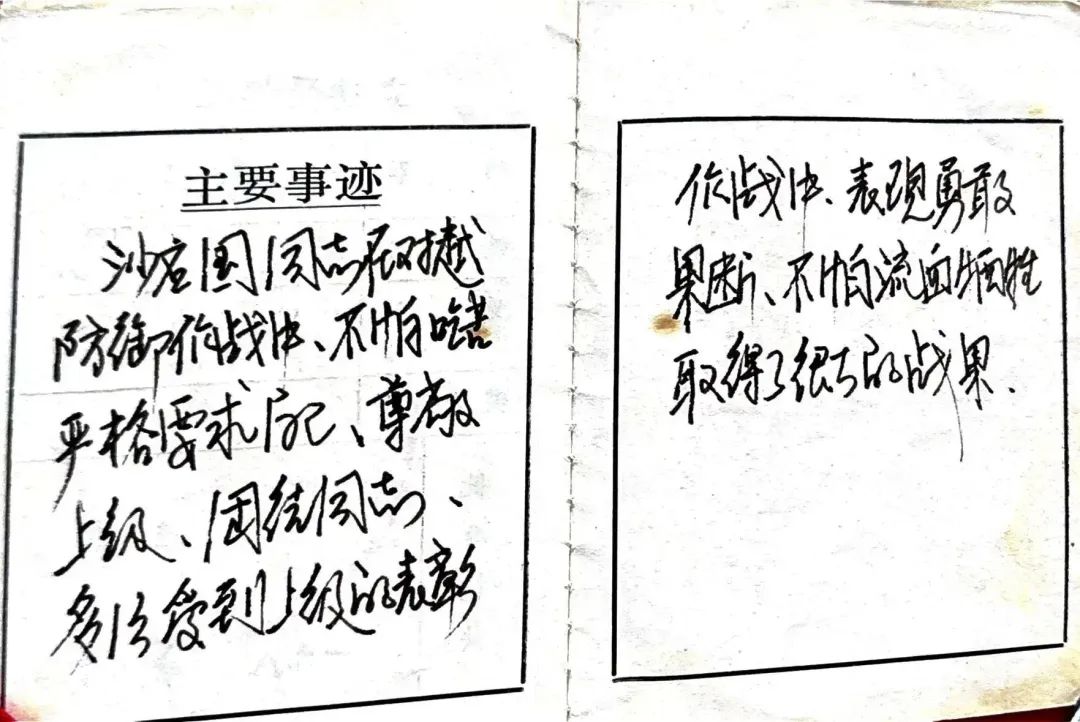 主要事迹
沙启国同志在对越
防御作战中、不怕吃苦
严格要求自己、尊敬
上级、团结同志、
多次受到上级的表彰
作战中、表现勇敢
果断、不怕流血牺牲
取得了很大的战果.